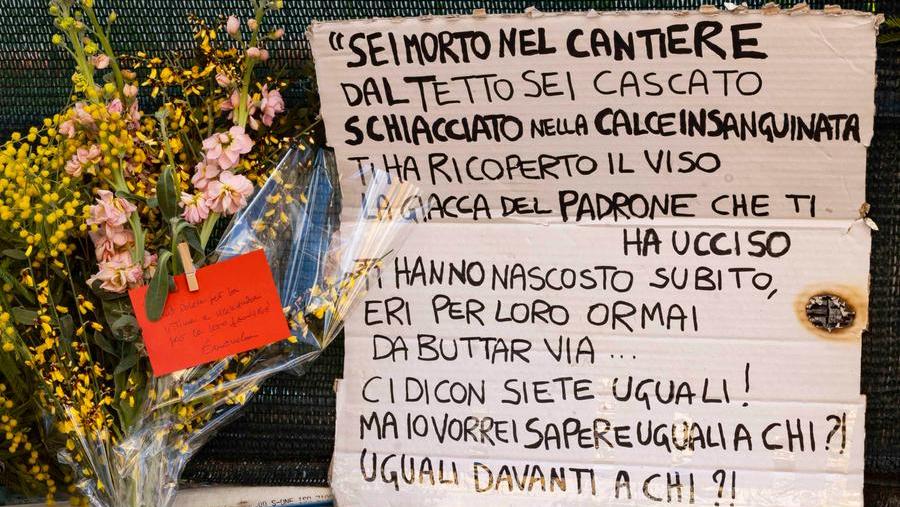 “SEI MORTO NEL CANTIERE
DAL TETTO SEI CASCATO
SCHIACCIATO NELLA CALCE INSANGUINATA
TI HA RICOPERTO IL VISO
LA GIACCA DEL PADRONE CHE TI
HA UCCISO
TI HANNO NASCOSTO SUBITO,
ERI PER LORO ORMAI
DA BUTTAR VIA ...
CI DICON SIETE UGUALI!
MA IO VORREI SAPERE UGUALI A CHI?!
UGUALI DAVANTI A CHI?!
per la
per le loro famiglie